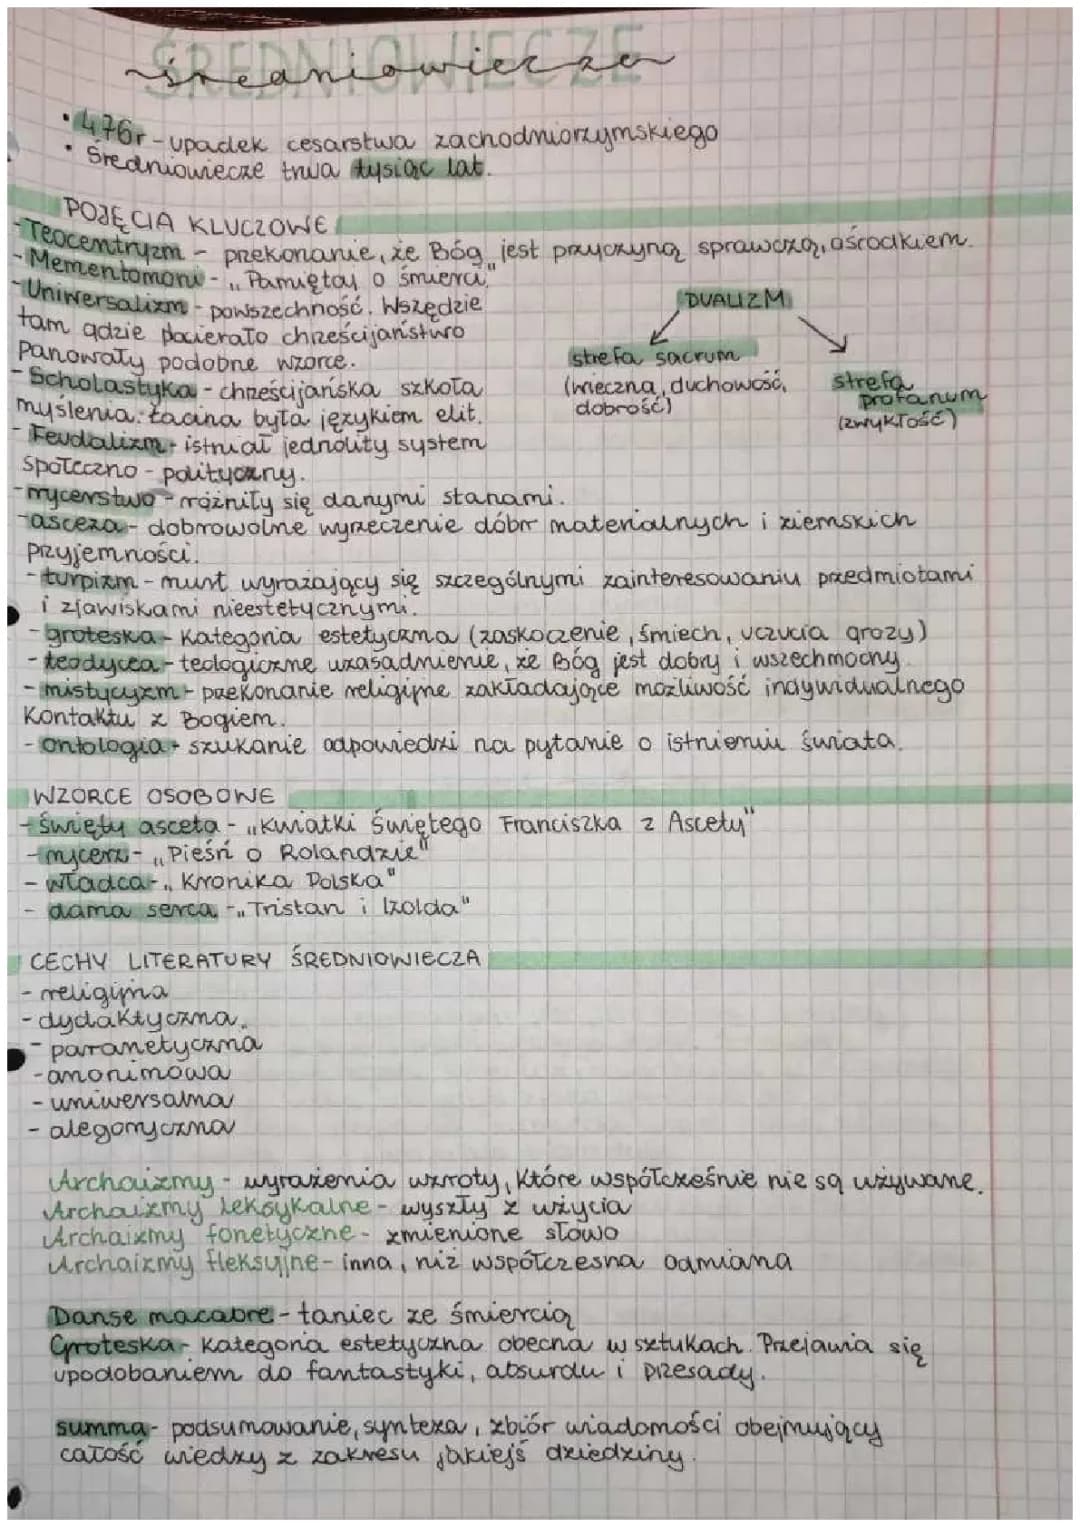 ŚREDNIOWIECZE
średniowiecze
• 476r - upadek cesarstwa zachodniorzymskiego
• Średniowiecze trwa tysiąc lat.
POJĘCIA KLUCZOWE
- Teocentryzm - przekonanie, że Bóg jest przyczyną sprawczą, ośrodkiem.
- Mementomori - "Pamiętaj o śmierci"
- Uniwersalizm - powszechność. Wszędzie
tam gdzie docierało chrześcijaństwo
panowały podobne wzorce.
- Scholastyka - chrześcijańska szkoła
myślenia. Łacina była językiem elit.
- Feudalizm - istniał jednolity system
społeczno - polityczny.
DUALIZM
strefa sacrum
(wieczna, duchowość,
dobrość)
strefa
profanum
(zwykłość)
- rycerstwo - różniły się danymi stanami.
- asceza - dobrowolne wyrzeczenie dóbr materialnych i ziemskich
przyjemności.
- turpizm - nurt wyrażający się szczególnymi zainteresowaniu przedmiotami
i zjawiskami nieestetycznymi.
- groteska - Kategoria estetyczna (zaskoczenie, śmiech, uczucia grozy)
- teodycea - teologiczne uzasadnienie, że Bóg jest dobry i wszechmocny.
- mistycyzm - przekonanie religijne zakładające możliwość indywidualnego
Kontaktu z Bogiem.
- ontologia - szukanie odpowiedzi na pytanie o istnieniu świata.
WZORCE OSOBOWE
- święty asceta - "Kwiatki Świętego Franciszka z Ascety"
- rycerz - "Pieśń o Rolandzie"
- władca - "Kronika Polska"
- dama serca - "Tristan i Izolda"
CECHY LITERATURY ŚREDNIOWIECZA
- religijna
- dydaktyczna.
- paranetyczna
- anonimowa
- uniwersalna
- alegoryczna
Archaizmy - wyrażenia wzroty, Które współcześnie nie są używane.
Archaizmy leksykalne - wyszły z użycia
Archaizmy fonetyczne - zmienione słowo
Archaizmy fleksyjne - inna, niż współczesna odmiana
Danse macabre - taniec ze śmiercią
Groteska - Kategoria estetyczna obecna w sztukach. Przejawia się
upodobaniem do fantastyki, absurdu i przesady.
summa - podsumowanie, synteza, zbiór wiadomości obejmujący
całość wiedzy z zakresu jakiejś dziedziny.